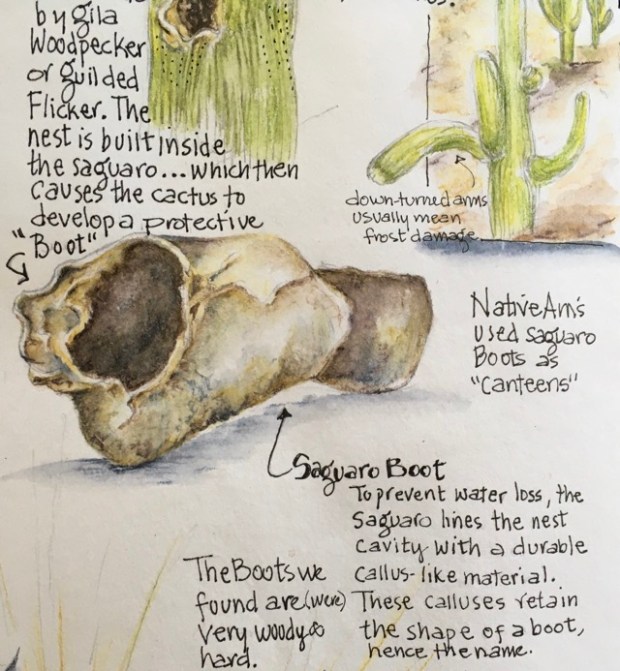 by gila
Woodpecker
or guilded
Flicker. The
nest is built inside
the saguaro...which then
causes the cactus to
develop a protective
"Boot"
down-turned arms
usually mean
frost damage.
Native Am's
used saguaro
Boots as
"canteens"
Saguaro Boot
To prevent water loss, the
Saguaro lines the nest
cavity with a durable
callus-like material.
These calluses retain
the shape of a boot,
hence the name.
The Boots we
found are (were)
very woody &
hard.